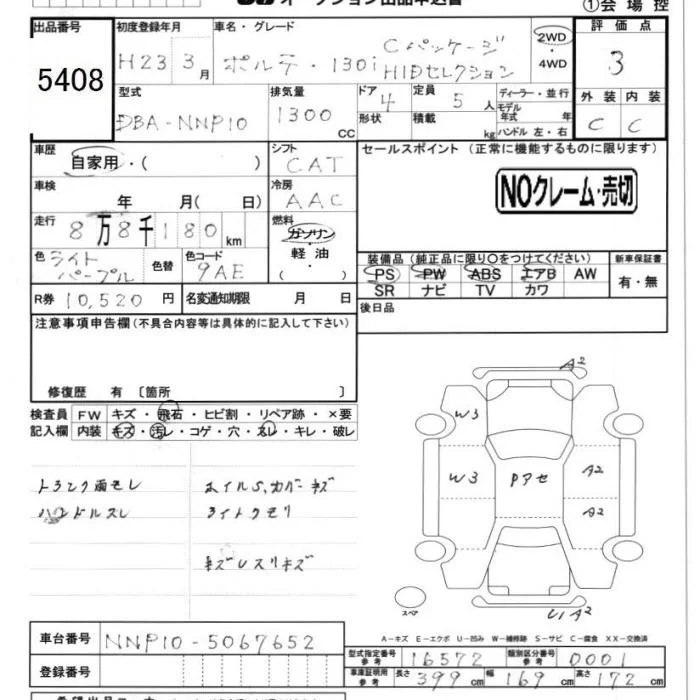 オークション出品申込書
①会場控
出品番号 5408
初度登録年月 H23 3月
車名・グレード ポルテ・130i Cパッケージ HIDセレクション
2WD・4WD
評価点 3
外装 内装
C C
型式 DBA-NNP10
排気量 1300 CC
ドア 4 形状
定員 5人 積載 kg
ディーラー・並行
モデル年式 年式
ハンドル 左・右
車歴 自家用・( )
シフト CAT
セールスポイント(正常に機能するものに限ります)
NOクレーム・売切
車検 年 月( 日)
冷房 AAC
走行 8万8千180km
燃料 ガソリン・軽油・( )
色 ライトパープル 色替
色コード 9AE
装備品(純正品に限り○をつけてください)
新車保証書
PS PW ABS エアB AW
SR ナビ TV カワ
有・無
R券 10,520円
名変通知期限 月 日
後日品
注意事項申告欄(不具合内容等は具体的に記入して下さい)
修復歴 有〔箇所 〕
検査員記入欄
FW キズ・飛石・ヒビ割・リペア跡・×要
内装 キズ・汚レ・コゲ・穴・スレ・キレ・破レ
トランク雨モレ
ハンドルスレ
ホイルS,カバーキズ
ライトクモリ
キズレスリキズ
A2
W3
W3
Pアセ
A2
A2
U1 A2
スペア
A-キズ E-エクボ U-凹み W-補修跡 S-サビ C-腐食 XX-交換済
車台番号 NNP10-5067652
登録番号
型式指定番号 参考 16572
類別区分番号 参考 0001
車庫証明用 参考 長さ 399cm 幅 169cm 高さ 172